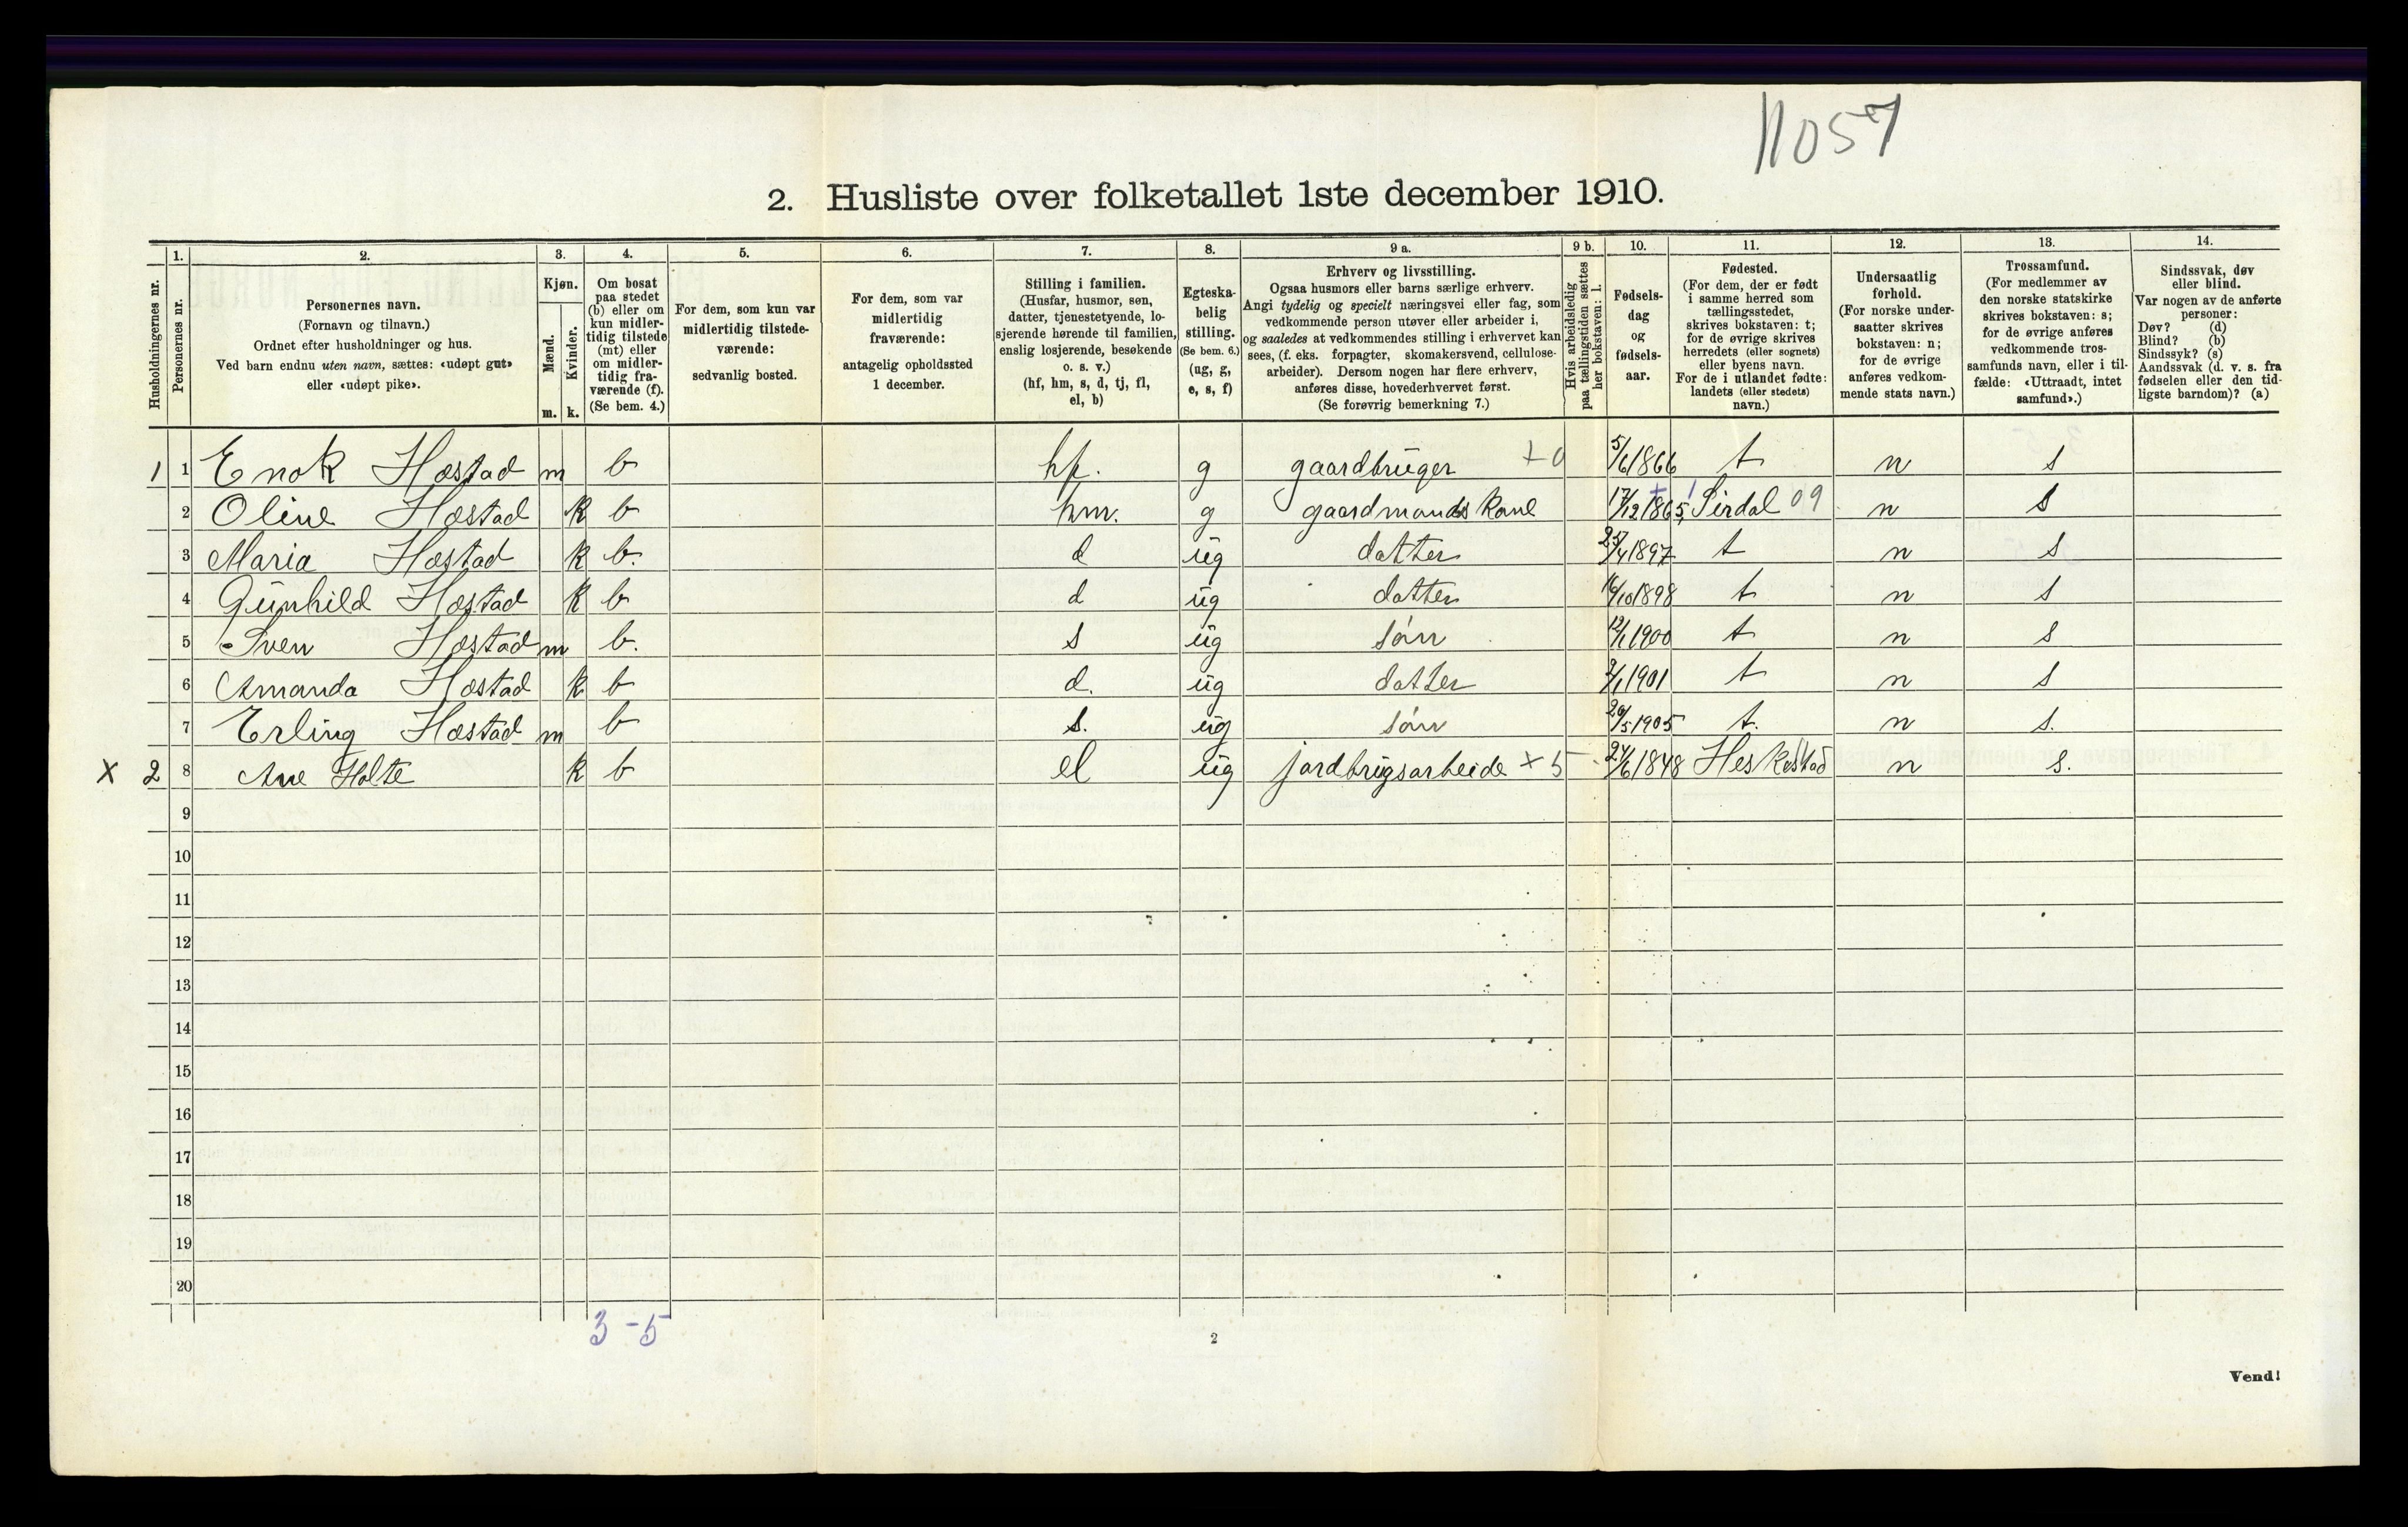 11057
2. Husliste over folketallet 1ste december 1910.
Husholdningernes nr.
1. Personernes nr.
2. Personernes navn. (Fornavn og tilnavn.) Ordnet efter husholdninger og hus. Ved barn endnu uten navn, sættes: «udøpt gut» eller «udøpt pike».
3. Kjøn. Mænd. m. Kvinder. k.
4. Om bosat paa stedet (b) eller om kun midlertidig tilstede (mt) eller om midlertidig fraværende (f). (Se bem. 4.)
5. For dem, som kun var midlertidig tilstedeværende: sedvanlig bosted.
6. For dem, som var midlertidig fraværende: antagelig opholdssted 1 december.
7. Stilling i familien. (Husfar, husmor, søn, datter, tjenestetyende, losjerende hørende til familien, enslig losjerende, besøkende o. s. v.) (hf, hm, s, d, tj, fl, el, b)
8. Egteskabelig stilling. (Se bem. 6.) (ug, g, e, s, f)
9 a. Erhverv og livsstilling. Ogsaa husmors eller barns særlige erhverv. Angi tydelig og specielt næringsvei eller fag, som vedkommende person utøver eller arbeider i, og saaledes at vedkommendes stilling i erhvervet kan sees, (f. eks. forpagter, skomakersvend, cellulosearbeider). Dersom nogen har flere erhverv, anføres disse, hovederhvervet først. (Se forøvrig bemerkning 7.)
9 b. Hvis arbeidsledig paa tællingstiden sættes her bokstaven: l.
10. Fødselsdag og fødselsaar.
11. Fødested. (For dem, der er født i samme herred som tællingsstedet, skrives bokstaven: t; for de øvrige skrives herredets (eller sognets) eller byens navn. For de i utlandet fødte: landets (eller stedets) navn.)
12. Undersaatlig forhold. (For norske undersaatter skrives bokstaven: n; for de øvrige anføres vedkommende stats navn.)
13. Trossamfund. (For medlemmer av den norske statskirke skrives bokstaven: s; for de øvrige anføres vedkommende trossamfunds navn, eller i tilfælde: «Uttraadt, intet samfund».)
14. Sindssvak, døv eller blind. Var nogen av de anførte personer: Døv? (d) Blind? (b) Sindssyk? (s) Aandssvak (d. v. s. fra fødselen eller den tidligste barndom)? (a)
1 1 Enok Hæstad m b hf. g gaardbruger +0 5/6 1866 t n s
2 Oline Hæstad k b hm. g gaardmands kone 17/12 1865 Sirdal 09 n s
3 Maria Hæstad k b. d ug datter 25/4 1897 t n s
4 Gunhild Hæstad k b d ug datter 16/10 1898 t n s
5 Sven Hæstad m b. s ug søn 12/1 1900 t n s
6 Amanda Hæstad k b d. ug datter 2/1 1901 t n s
7 Erling Hæstad m b s. ug søn 20/5 1905 t. n s.
x 2 8 Ane Holte k b el ug jordbrugsarbeide +5 24/6 1848 Heskestad n s.
9
10
11
12
13
14
15
16
17
18
19
20
3-5
2
Vend!